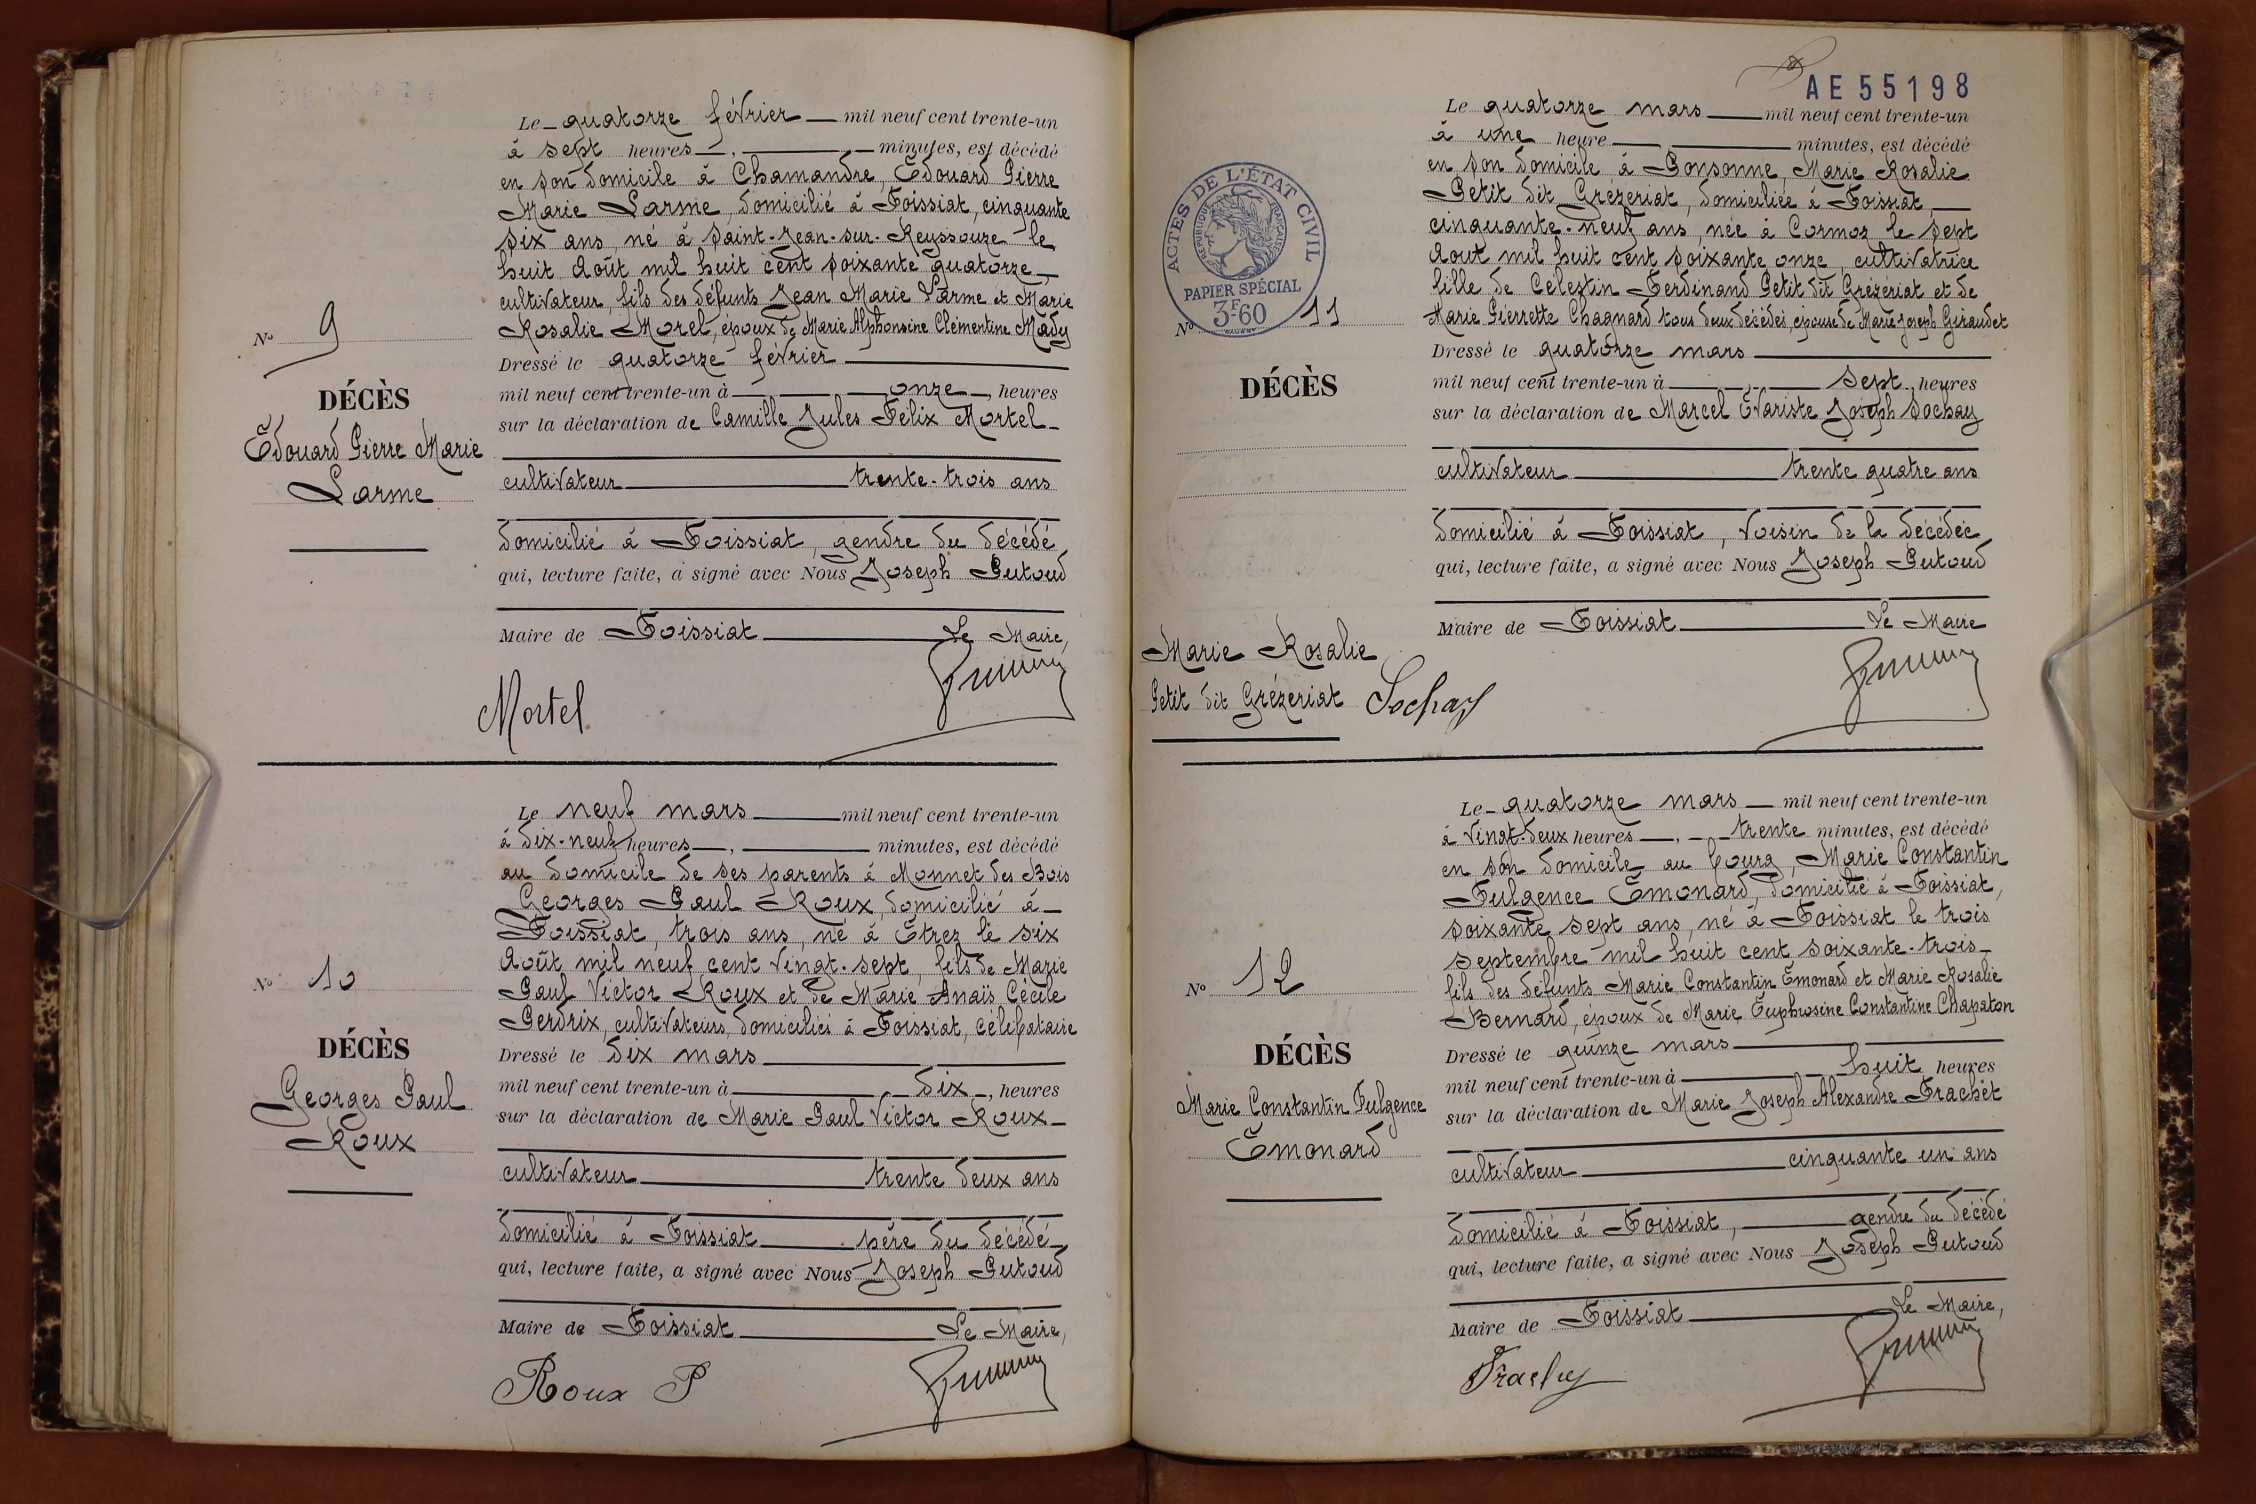 Le quatorze février mil neuf cent trente-un
à sept heures, minutes, est décédé
en son domicile à Chamandre, Edouard Pierre
Marie Larme, domicilié à Foissiat, cinquante
six ans, né à Saint-Jean-sur-Reyssouze le
huit Août mil huit cent soixante quatorze
cultivateur, fils des défunts Jean Marie Larme et Marie
Rosalie Morel, époux de Marie Alphonsine Clémentine Mady
Dressé le quatorze février
mil neuf cent trente-un à onze, heures
sur la déclaration de Camille Jules Félix Mortel
cultivateur trente-trois ans
domicilié à Foissiat, gendre du décédé
qui, lecture faite, a signé avec Nous Joseph Putoud
Maire de Foissiat Le Maire,
Mortel
No 9
DÉCÈS
Edouard Pierre Marie
Larme
Le neuf mars mil neuf cent trente-un
à dix-neuf heures, minutes, est décédé
au domicile de ses parents à Monnet des Bois
Georges Paul Roux, domicilié à
Foissiat, trois ans, né à Etrez le six
Août mil neuf cent vingt-sept, fils de Marie
Paul Victor Roux et de Marie Anaïs Cécile
Perdrix, cultivateurs, domiciliés à Foissiat, célibataire
Dressé le dix mars
mil neuf cent trente-un à dix, heures
sur la déclaration de Marie Paul Victor Roux
cultivateur trente deux ans
domicilié à Foissiat père du décédé
qui, lecture faite, a signé avec Nous Joseph Putoud
Maire de Foissiat Le Maire,
Roux P
No 10
DÉCÈS
Georges Paul
Roux
AE 55198
Le quatorze mars mil neuf cent trente-un
à une heure, minutes, est décédé
en son domicile à Ponsonne, Marie Rosalie
Petit dit Grézeriat, domiciliée à Foissiat,
cinquante-neuf ans, née à Cormoz le sept
Aout mil huit cent soixante onze, cultivatrice
fille de Célestin Ferdinand Petit dit Grézeriat et de
Marie Pierrette Chagnard tous deux décédés, épouse de Marie Joseph Giraudet
Dressé le quatorze mars
mil neuf cent trente-un à sept, heures
sur la déclaration de Marcel Evariste Joseph Sochay
cultivateur trente quatre ans
domicilié à Foissiat, voisin de la décédée
qui, lecture faite, a signé avec Nous Joseph Putoud
Maire de Foissiat Le Maire
Sochay
ACTES DE L'ÉTAT CIVIL
RÉPUBLIQUE FRANÇAISE
PAPIER SPÉCIAL
3F60
No 11
DÉCÈS
Marie Rosalie
Petit dit Grézeriat
Le quatorze mars mil neuf cent trente-un
à vingt-deux heures, trente minutes, est décédé
en son domicile au bourg, Marie Constantin
Fulgence Emonard, domicilié à Foissiat,
soixante sept ans, né à Foissiat le trois
septembre mil huit cent soixante-trois
fils des défunts Marie Constantin Emonard et Marie Rosalie
Bernard, époux de Marie Euphrosine Constantine Chapaton
Dressé le quinze mars
mil neuf cent trente-un à huit heures
sur la déclaration de Marie Joseph Alexandre Frachet
cultivateur cinquante un ans
domicilié à Foissiat, gendre du décédé
qui, lecture faite, a signé avec Nous Joseph Putoud
Maire de Foissiat Le Maire,
No 12
DÉCÈS
Marie Constantin Fulgence
Emonard